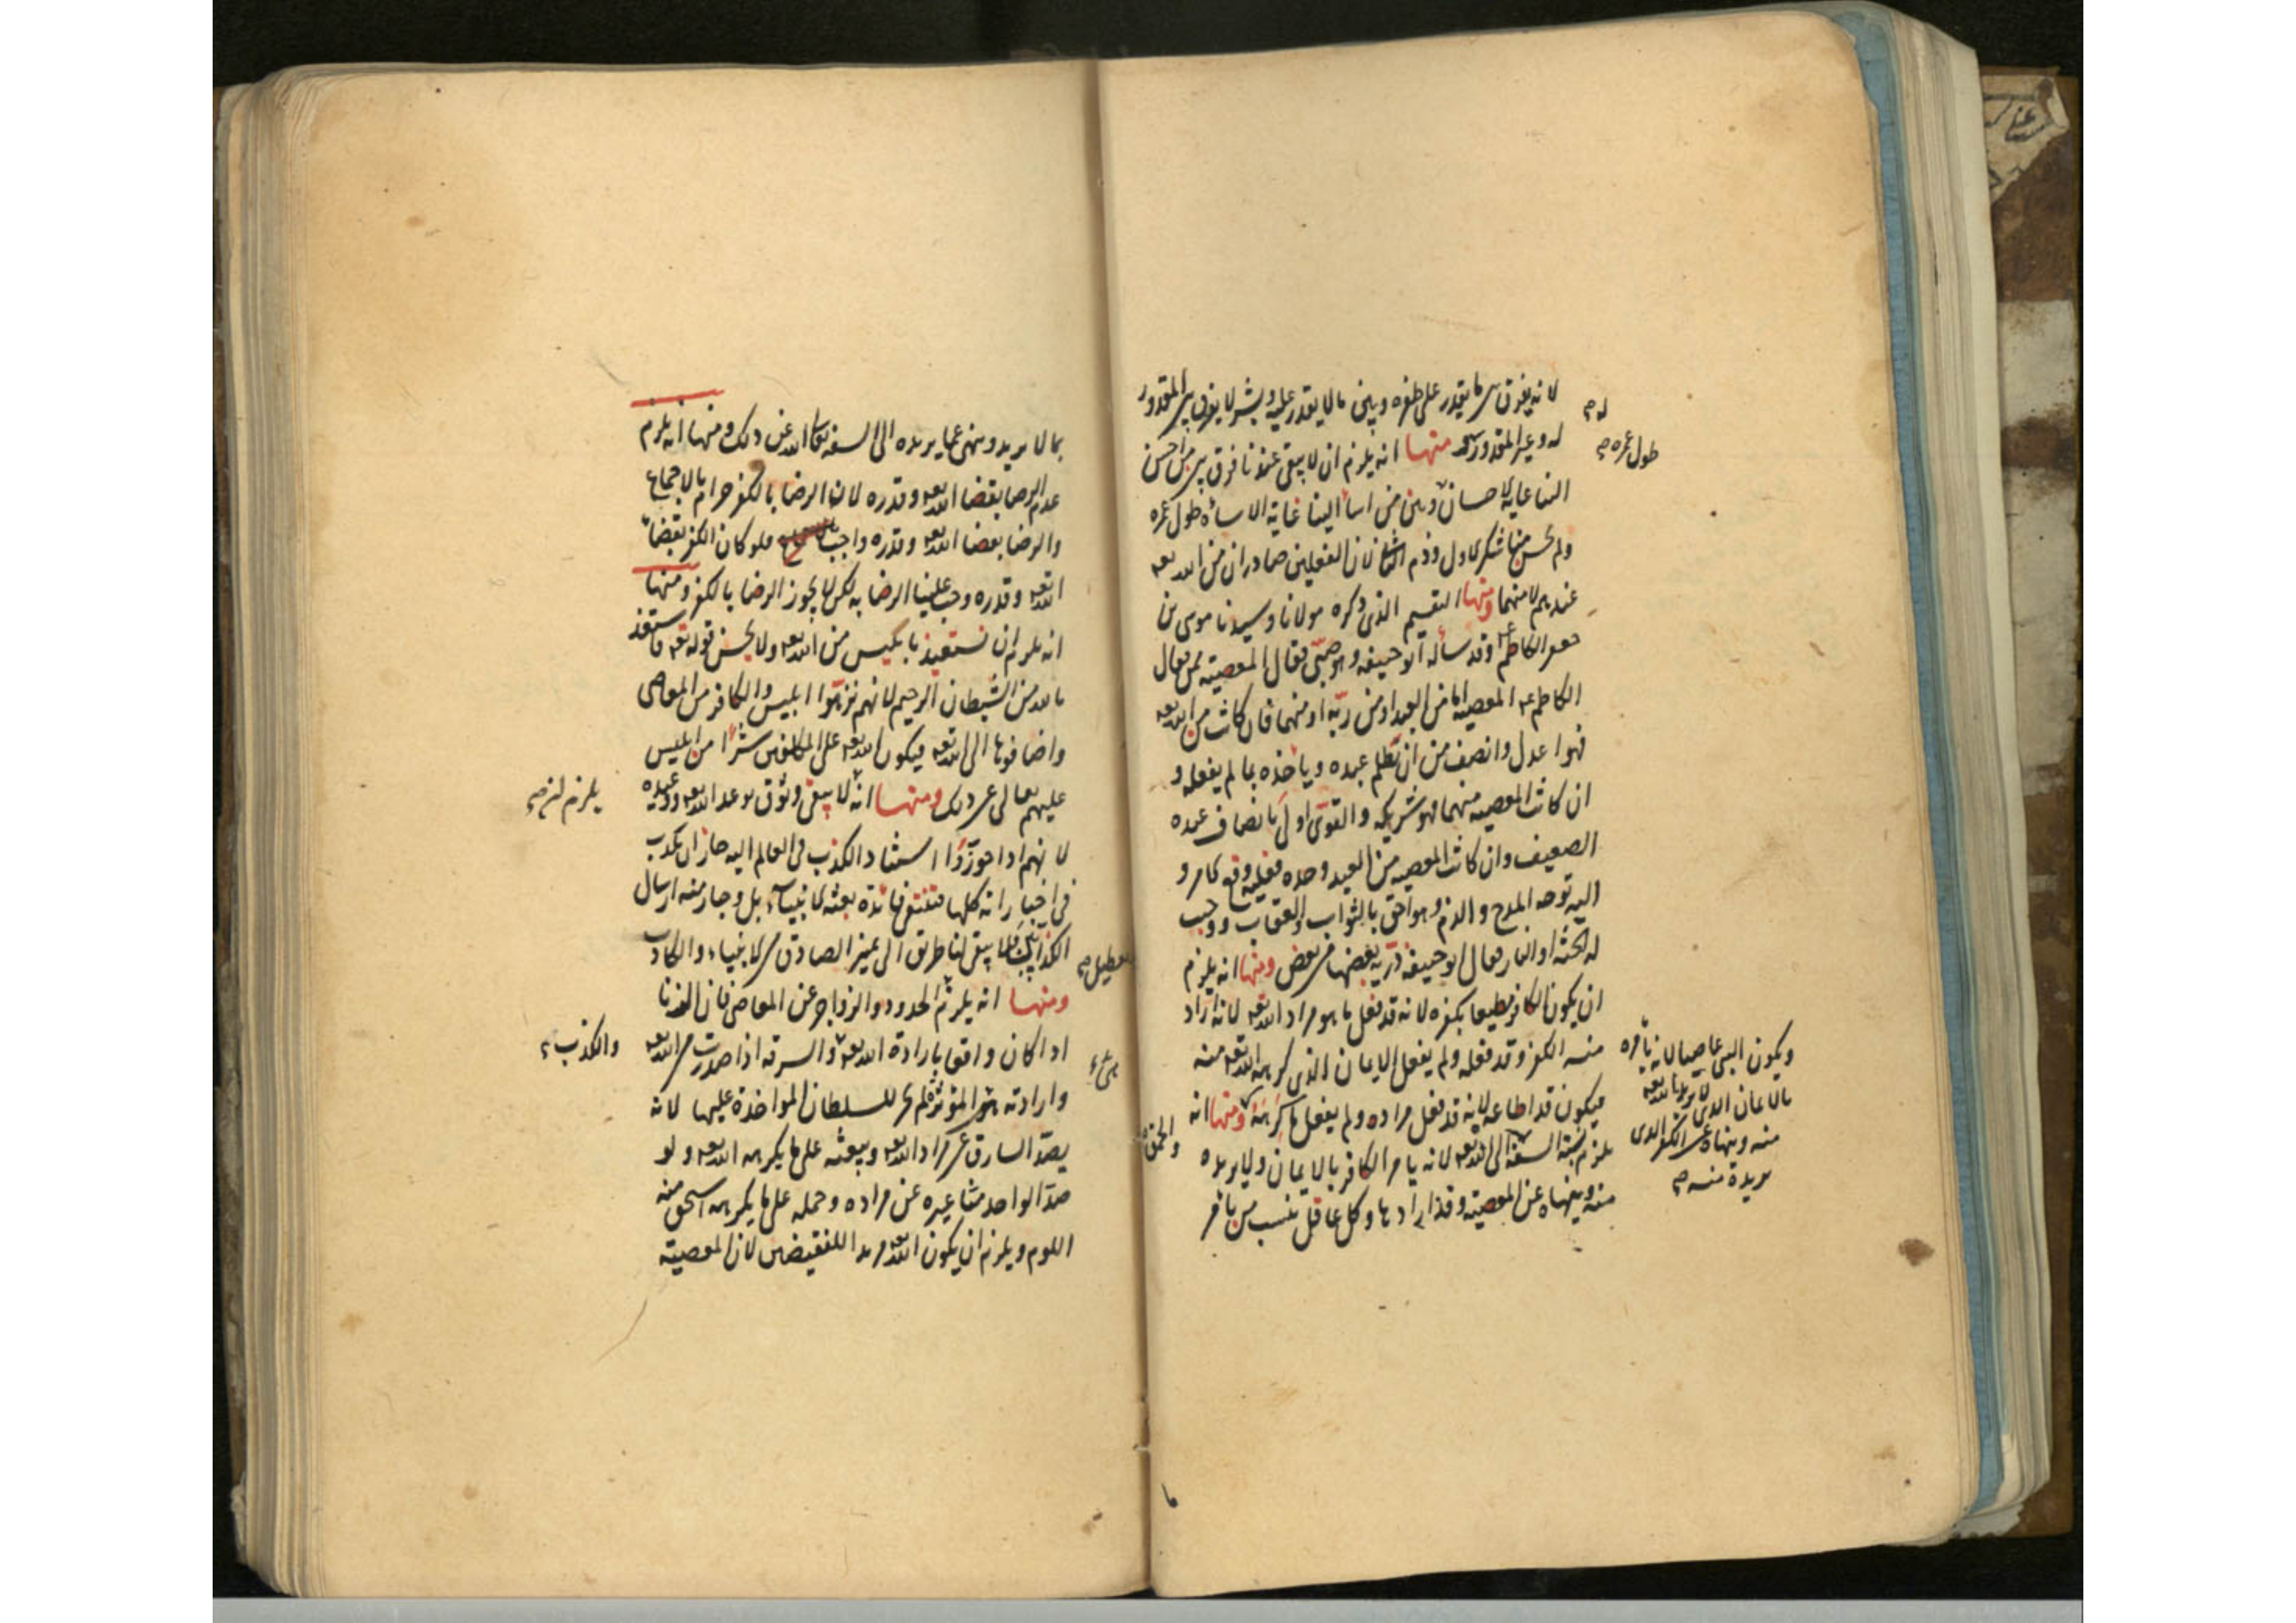 لانه يفرق بين ما يقدر على طفره وبين ما لا يقدر عليه وبشر لا يفرق بين المقدور
له وغير المقدور له منها انه يلزم ان لا يبقى عندنا فرق بين من احسن
الينا غاية الاحسان وبين من اسأ الينا غاية الاساءة طول عمره
ولم يحسن منا شكر الاول وذم الثانى لان الفعلين صادران من الله تعه
عندهم لا منهما ومنها التقسيم الذى ذكره مولانا وسيدنا موسى بن
جعفر الكاظم ع وقد سأله ابو حنيفه وهو صبى فقال المعصية ممن فقال
الكاظم ع المعصية اما من العبد او من ربه او منهما فان كانت من الله تعه
فهو اعدل وانصف من ان يظلم عبده ويأخذه بما لم يفعله و
ان كانت المعصيه منهما فهو شريكه والقوى اولى بانصاف عبده
الضعيف وان كانت المعصيه من العبد وحده فعليه وقع الامر و
اليه توجه المدح والذم وهو احق بالثواب والعقاب ووجب
له الجنة او النار فقال ابو حنيفه ذرية بعضها من بعض ومنها انه يلزم
ان يكون الكافر مطيعا بكفره لانه قد فعل ما هو مراد الله تعه لانه اراد
منه الكفر وقد فعله ولم يفعل الايمان الذى كرهه الله تعه منه
فيكون قد اطاعه لانه قد فعل مراده ولم يفعل ما كرهه ومنها انه
يلزم نسبة السفه الى الله تعه لانه يامر الكافر بالايمان ولا يريده
منه وينهاه عن المعصية وقد ارادها وكل عاقل ينسب من يأمر
له صح
طول عمره صح
ويكون النبى عاصيا لانه يأمره
بالايمان الذى لا يريد الله تعه
منه وينهاه عن الكفر الذى
يريده منه صح
والحمق
بما لا يريد وينهى عما يريده الى السفه تعالى الله عن ذلك ومنها انه يلزم
عدم الرضا بقضا الله تعه وقدره لان الرضا بالكفر حرام بالاجماع
والرضا بقضا الله تعه وقدره واجب فلو كان الكفر بقضاء
الله تعه وقدره وجب علينا الرضا به لكن لا يجوز الرضا بالكفر ومنها
انه يلزم ان نستعيذ بابليس من الله تعه ولا يحسن قوله تعه فاستعذ
بالله من الشيطان الرجيم لانهم نزهوا ابليس والكافر من المعاصى
واضافوها الى الله تعه فيكون الله تعه على المكلفين شرا من ابليس
عليهم تعالى عن ذلك ومنها انه لا يبقى وثوق بوعد الله تعه ووعيده
لانهم اذا جوزوا استناد الكذب فى العالم اليه جاز ان يكذب
فى اخباراته كلها فتنتفى فائدة بعثة الانبياء بل وجاز منه ارسال
الكذاب فلا يبقى لنا طريق الى تميز الصادق من الانبياء والكاذب
ومنها انه يلزم الحدود والزواجر عن المعاصى فان الزنا
اذا كان واقعا بارادة الله تعه والسرقه اذا صدرت من الله تعه
وارادته هى المؤثرة لم يجز للسلطان المواخذة عليها لانه
يصد السارق عن مراد الله تعه ويبعثه على ما يكرهه الله تعه ولو
صد الواحد منا غيره عن مراده وحمله على ما يكرهه استحق منه
اللوم ويلزم ان يكون الله مريدا للنقيضين لان المعصية
تعطيل صح
والكذب